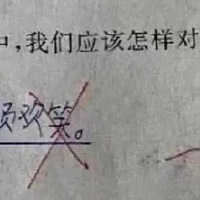 中,我们应该怎样对
欢笑。